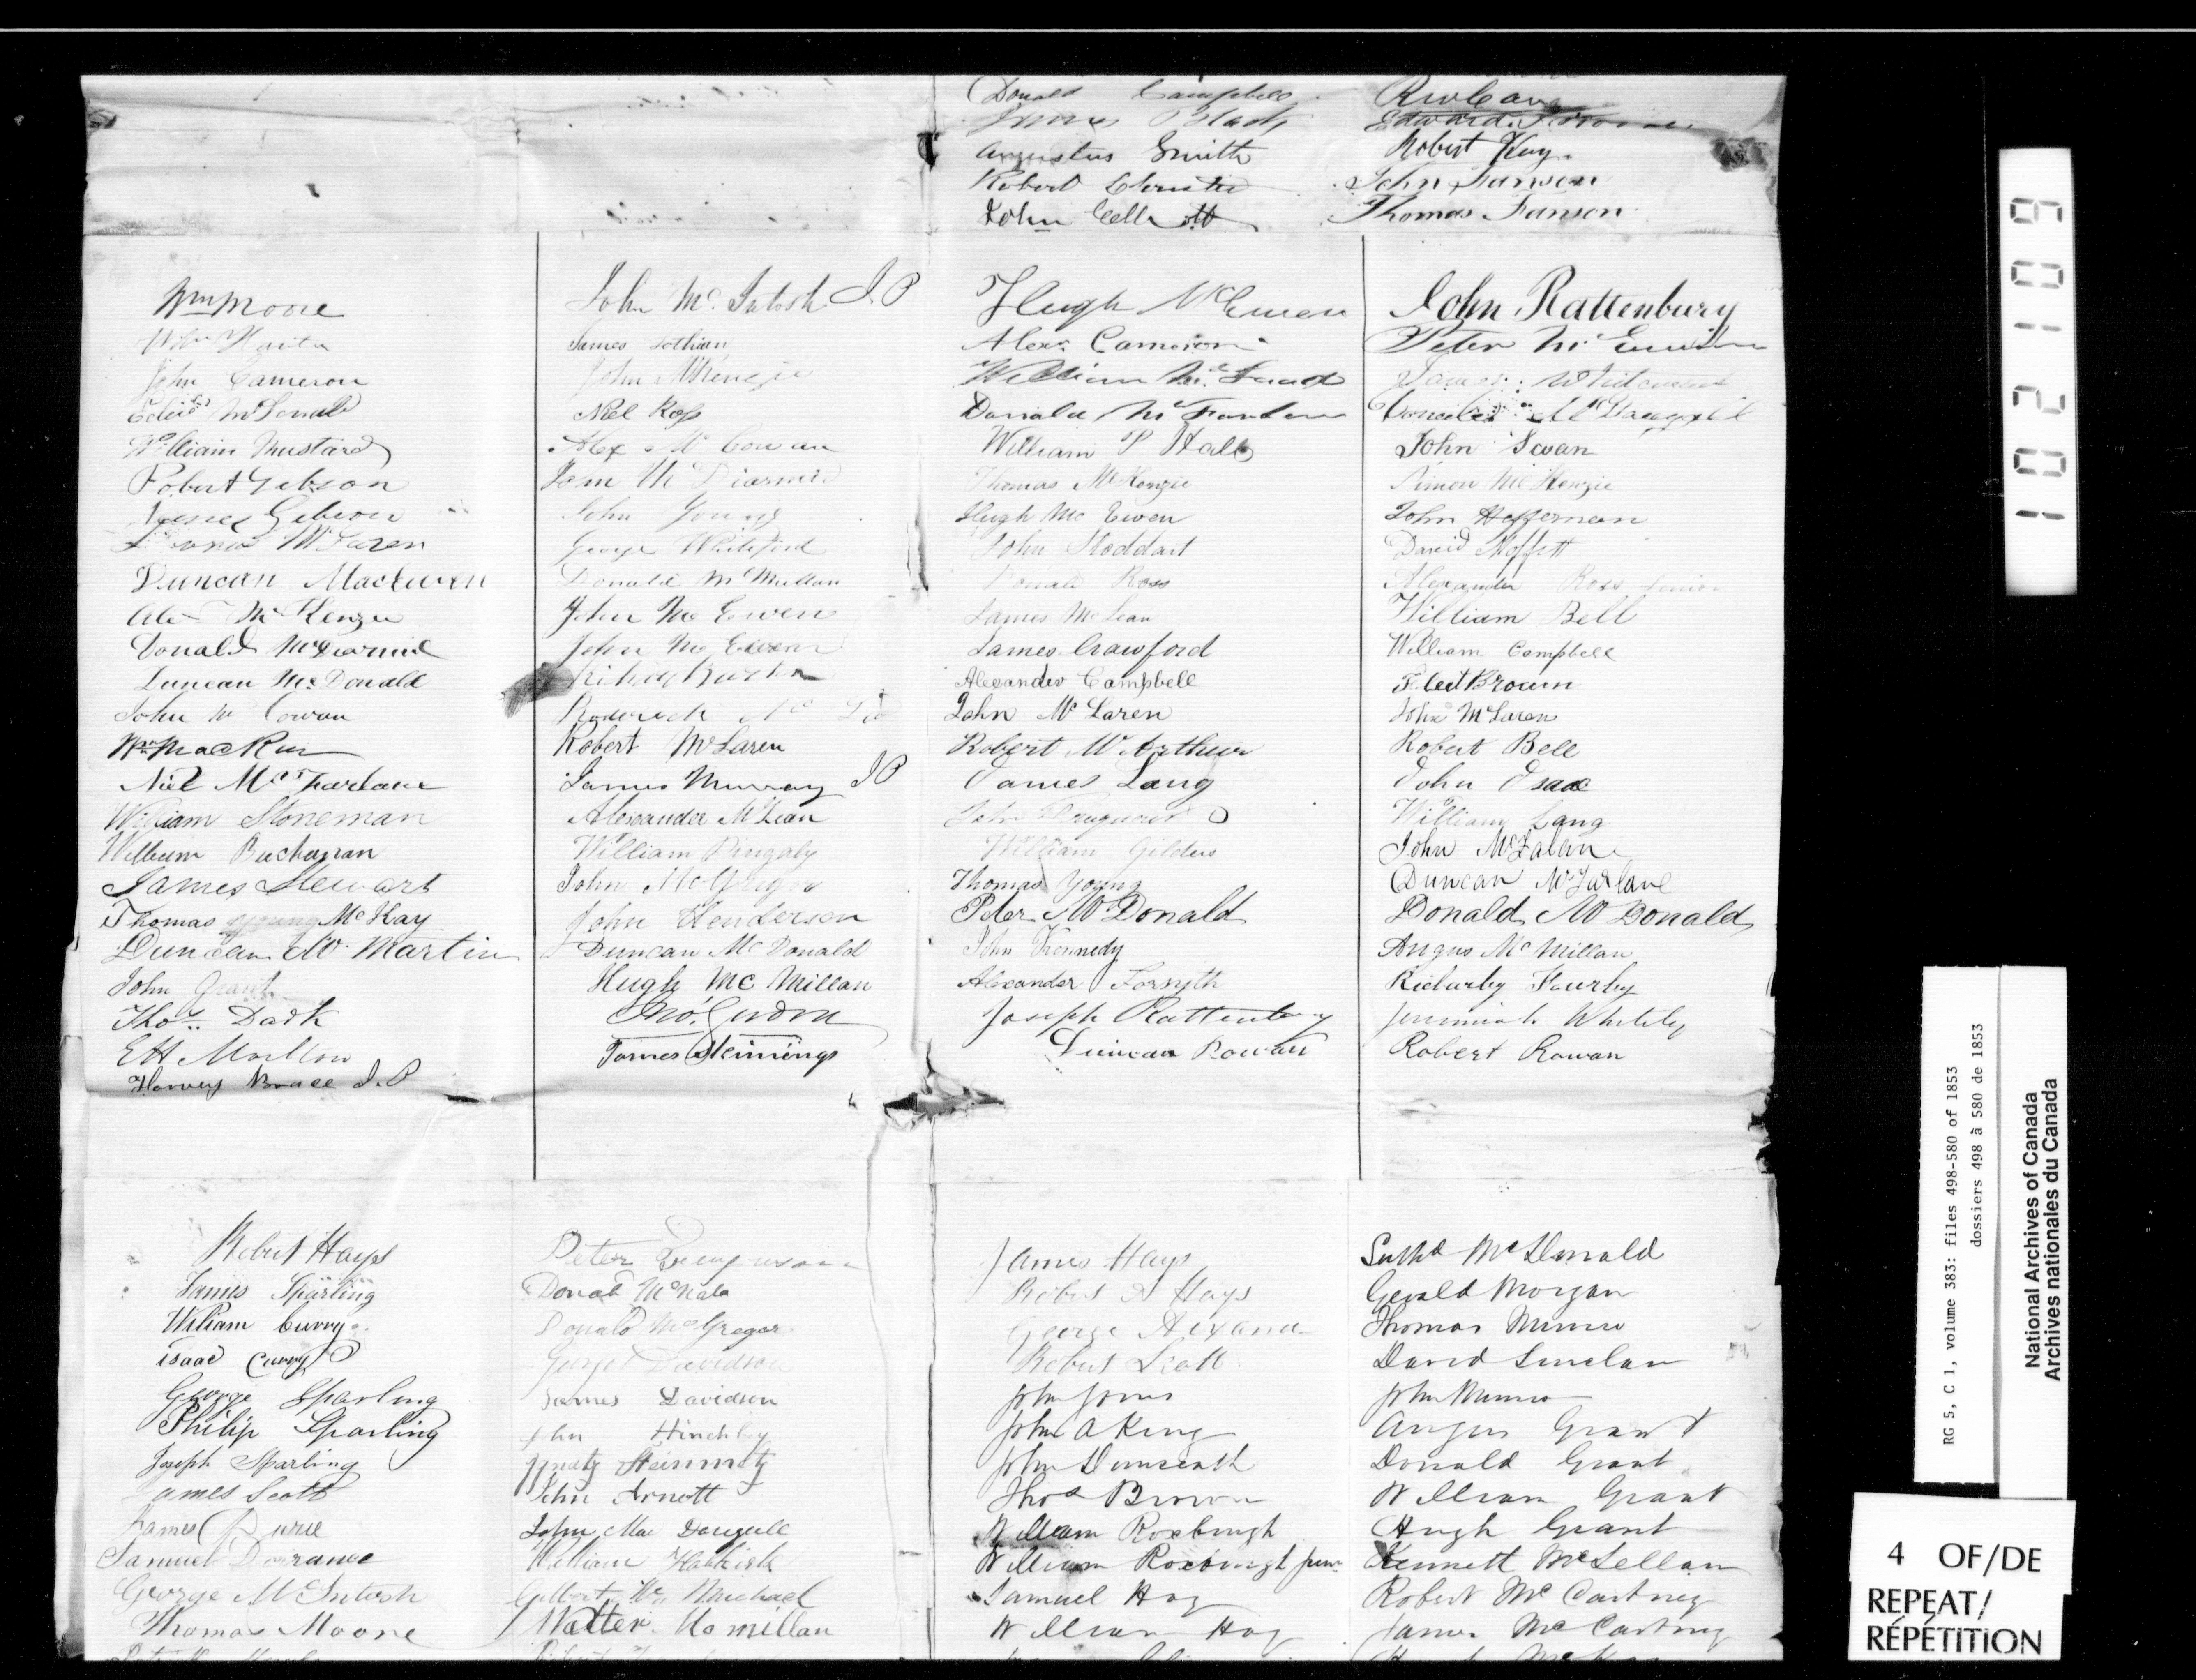 Donald Campbell
James Black
Angustus Smith
Robert Christie
John Elliott
Edward
Robert Kay.
John Fanson
Thomas Fanson
Wm Moore
John Cameron
William Mustard
Robert Gibson
James Gibson
McLaren
Duncan MacEwen
Alex McKenzie
Donald McDiarmid
Duncan McDonald
John Mc Cowan
Wm MacKer
Niel McFarlane
William Stoneman
William Buchanan
James Stewart
Thomas young McKay
Duncan Mc Martin
John Grant
Thos Dark
E H Marlton
Harvey Brace J.P
John McIntosh J P
James Lothian
John McKenzie
Niel Ross
Alex Mc Cowan
John McDiarmid
John Young
George Whiteford
Donald McMillan
John Mc Ewen
John Mc Ewen
Roderick Mc
Robert McLaren
James Murray J P
Alexander McLean
William Dingaly
John McGregor
John Henderson
Duncan McDonald
Hugh McMillan
James Hemmings
Hugh McEwen
Alexr Cameron
William
Donald Mc
William P Hall
Thomas McKenzie
Hugh Mc Ewen
John Stoddart
Donald Ross
James McLean
James Crawford
Alexander Campbell
John McLaren
Robert McArthur
James Lang
John
William Gilders
Thomas Young
Peter McDonald
John Kennedy
Alexander Forsyth
Joseph Rattenbury
Duncan Rowan
John Rattenbury
Peter Mc
James
Mc
John Swan
Simon McKenzie
John Heffernan
David Moffett
Alexander Ross senior
William Bell
William Campbell
Brown
John McLaren
Robert Bell
John Isaac
William Lang
John
Duncan McFarlane
Donald McDonald
Angus McMillan
Fourby
Jeremiah Whitely
Robert Rowan
Robert Hays
James Sparling
William Curry
Isaac Curry
George Sparling
Philip Sparling
Joseph Sparling
James Scott
James
Samuel Dorrance
George McIntosh
Thomas Moore
Peter
Donald
Donald McGregor
George Davidson
James Davidson
John Hinchley
Ignatz Steinmetz
John Arnott
John Mac Dougall
William
Gilbert McMichael
Walter Mc millan
James Hays
Robert A Hays
George
Robert Scott
John Jones
John A King
John Dunseath
Thos Brown
William Roxbrugh
William Roxbrugh junr
Samuel Hog
William Hog
McDonald
Gerald Morgan
Thomas Munro
David Sinclair
John Munro
Angus Grant
Donald Grant
William Grant
Hugh Grant
Kennett McLellan
Robert McCartney
James McCartney
102109
RG 5, C 1, volume 383: files 498-580 of 1853
dossiers 498 à 580 de 1853
National Archives of Canada
Archives nationales du Canada
4 OF/DE
REPEAT/
RÉPÉTITION